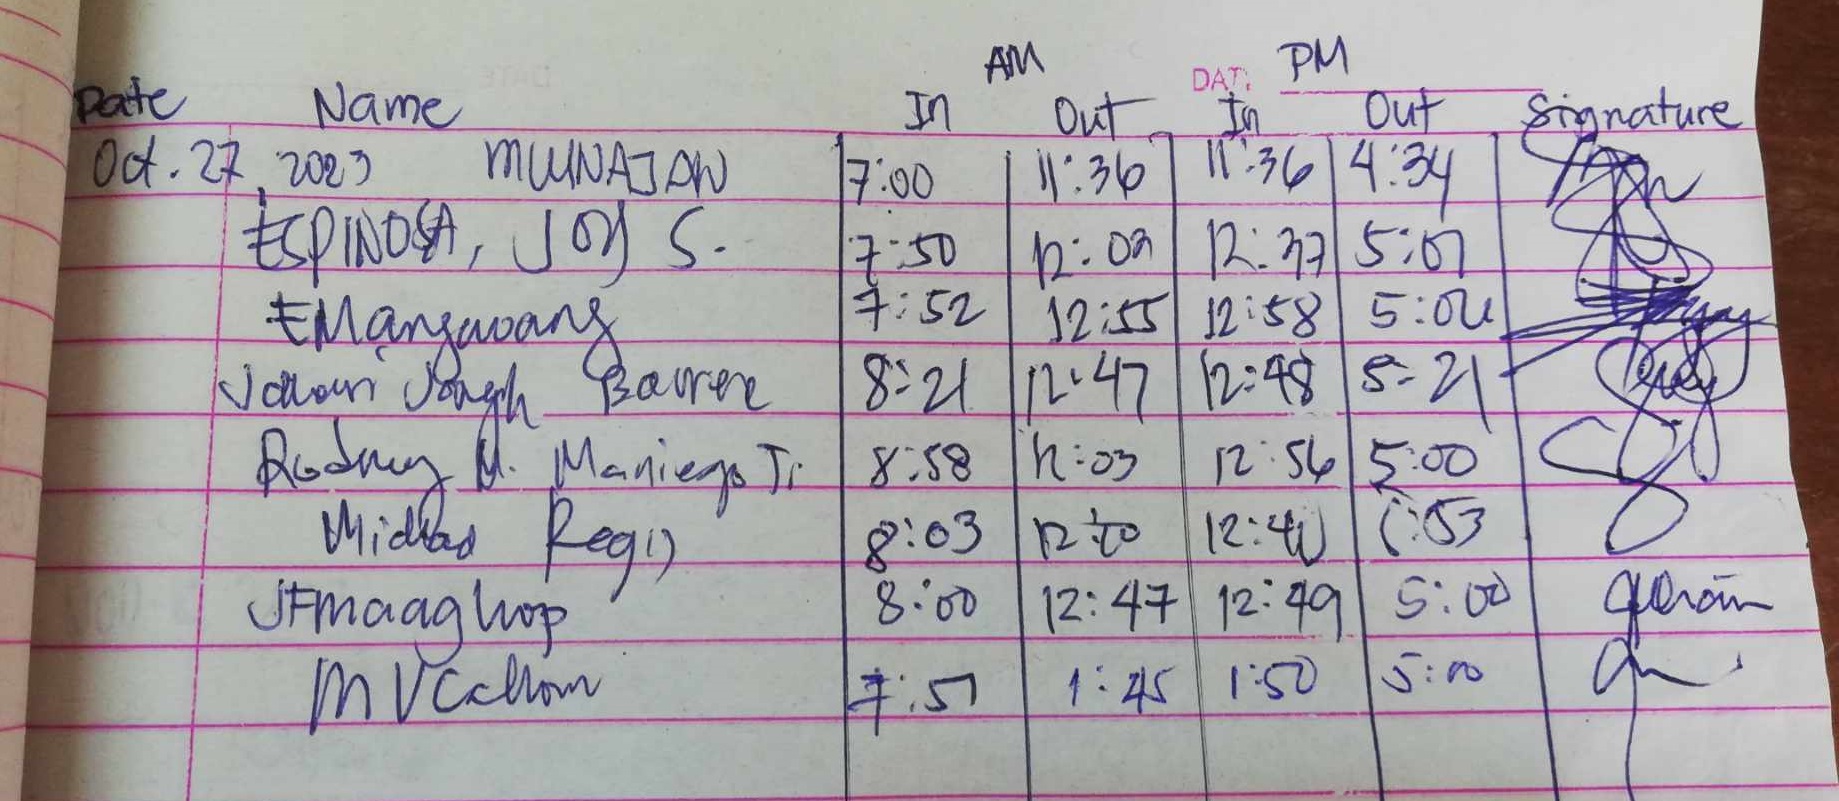 AM DATE: PM
Date Name In Out In Out Signature
Oct. 27, 2023 MUINAJAW 7:00 11:36 11:36 4:34
ESPINOSA, JOY S. 7:50 12:03 12:37 5:07
EMangwoang 7:52 12:55 12:58 5:04
8:21 12:47 12:48 5:21
Rodney M. Maniego Jr. 8:58 12:03 12:56 5:00
Regis 8:03 12:40 :53
JFmaaghop 8:00 12:47 12:49 5:00
7:51 1:45 1:50 5:00